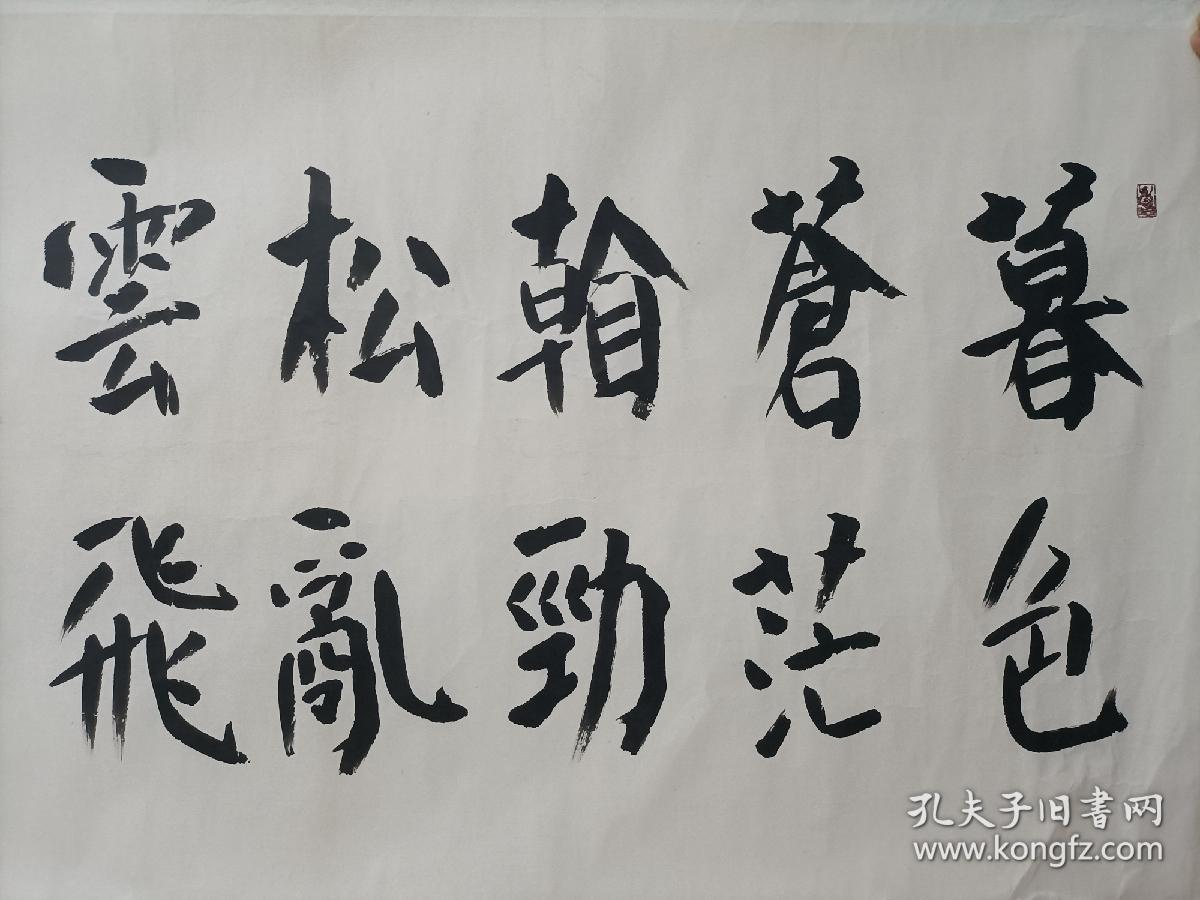 暮色
蒼茫
看勁
松亂
雲飛
孔夫子旧书网
www.kongfz.com